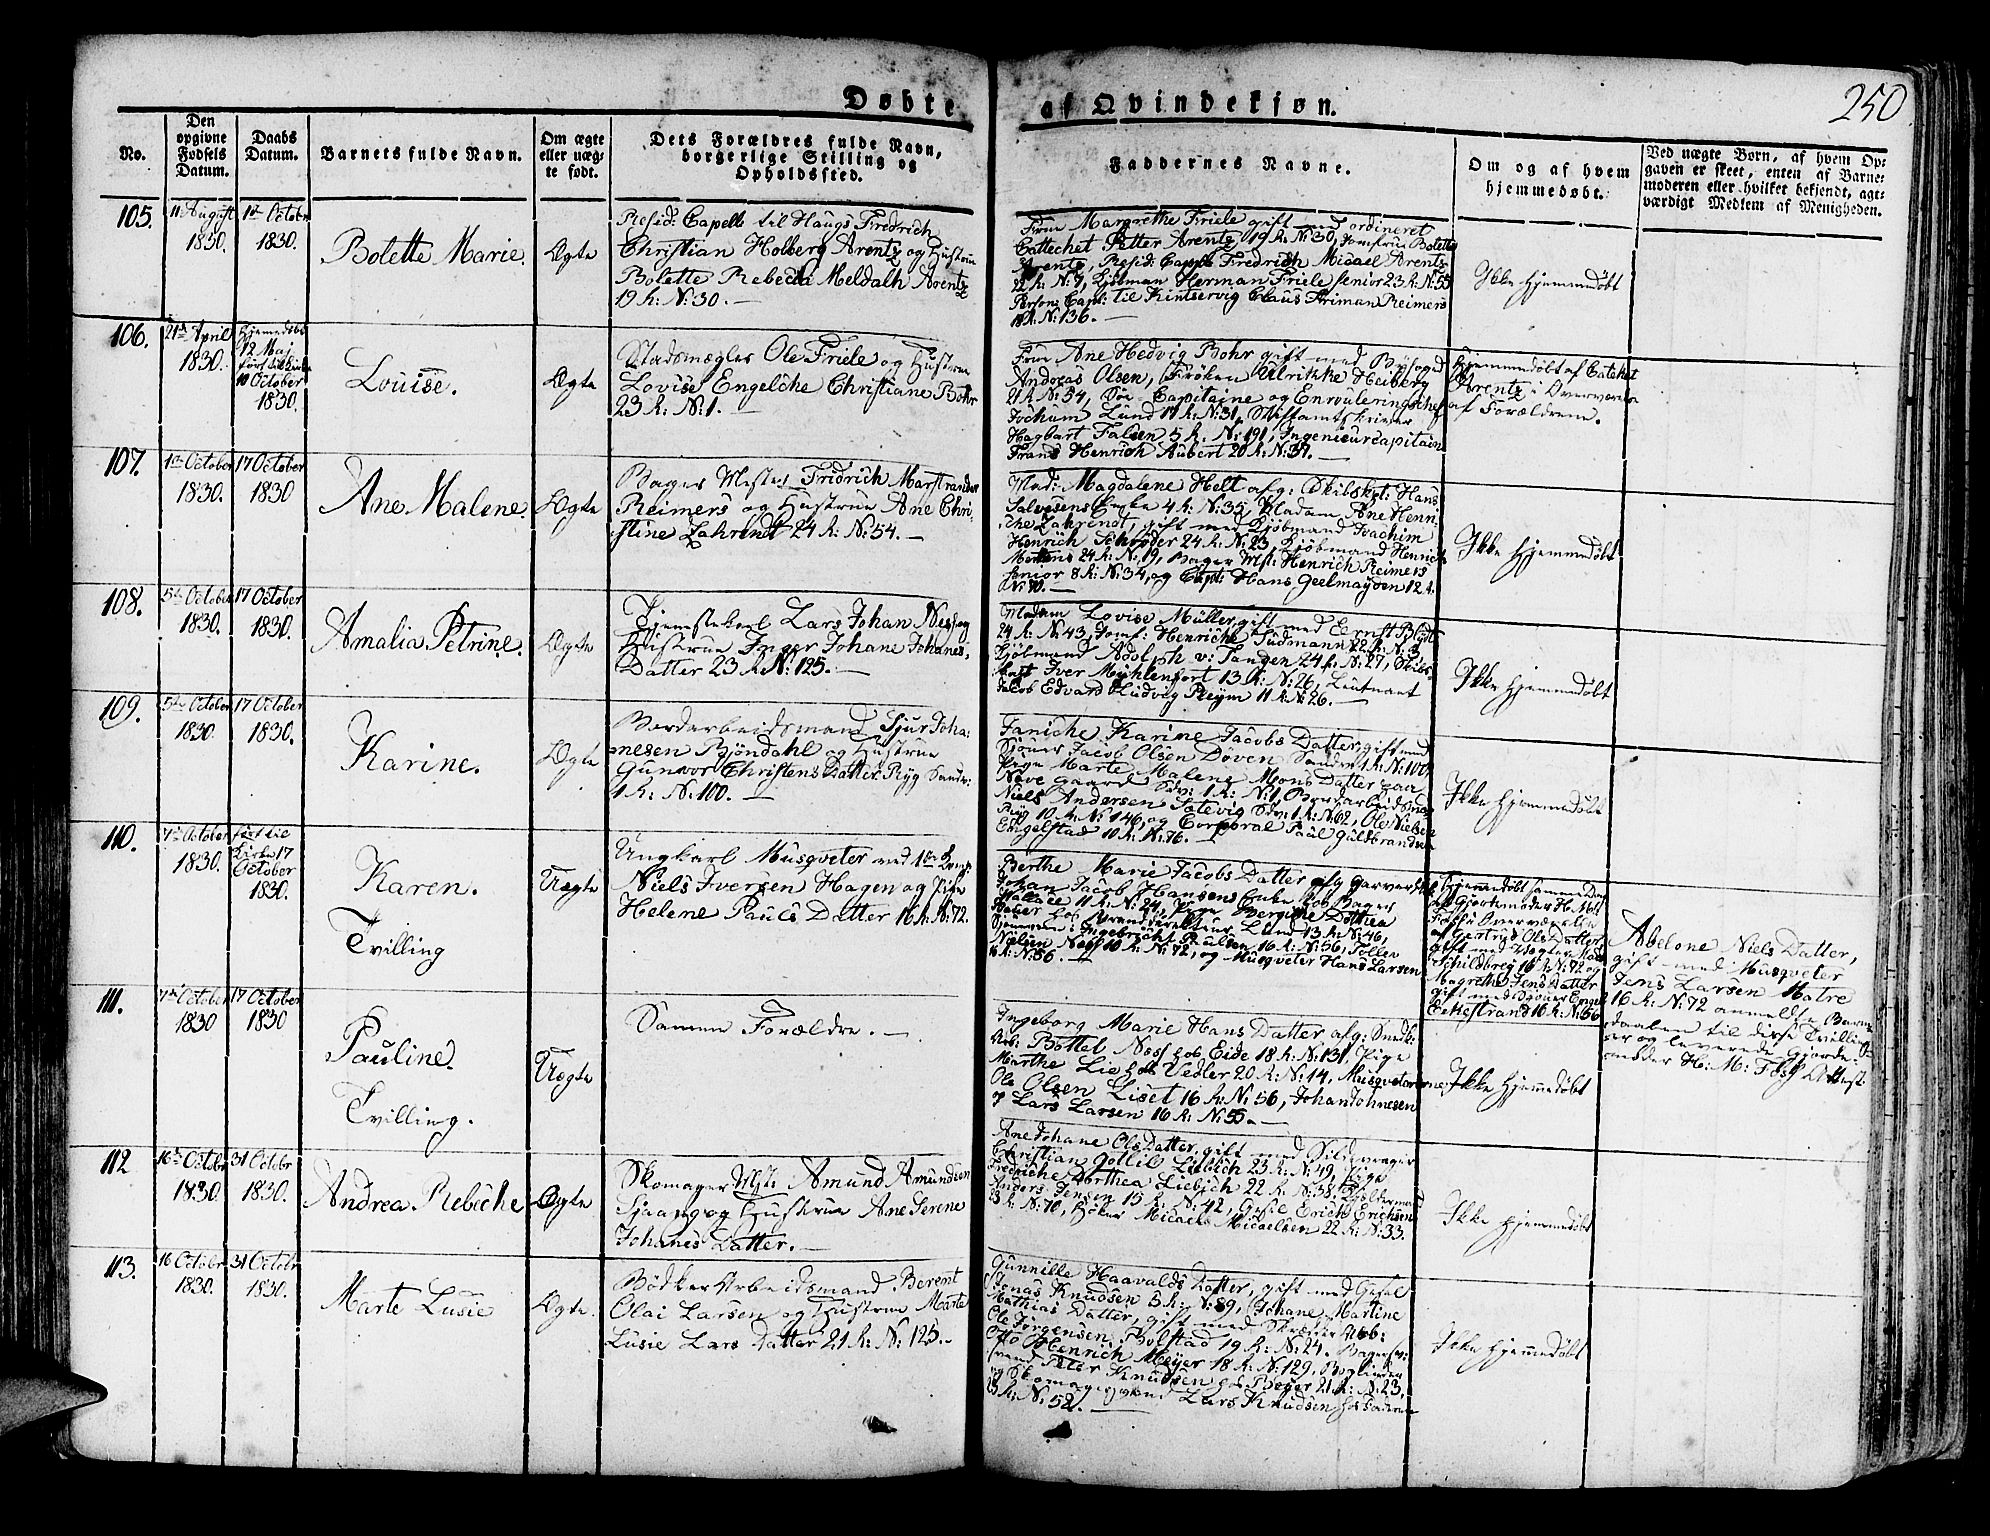 250
Døbte af Qvindekjøn.
No.
Den opgivne Fødsels Datum.
Daabs Datum.
Barnets fulde Navn.
Om ægte eller uægte født.
Dets Forældres fulde Navn, borgerlige Stilling og Opholdssted.
Faddernes Navne.
Om og af hvem hjemmedøbt.
Ved uægte Børn, af hvem Opgaven er skeet, enten af Barnemoderen eller hvilket bekjendt, agtværdigt Medlem af Menigheden.
105.
11 August
1830.
1ste October
1830.
Bolette Marie.
Ægte
Resid: Capell: til Haugs Fredrich
Christian Holberg Arentz og Hustrue
Bolette Rebecka Meldalh Arentz
19 R: N: 30. —
Frue Margrethe Friele gift med ordineret
Cattechet Petter Arentz 19 R: N: 30, Jomfrue Bolette
Arentz, Resid: Capell: Fredrich Micael Arentz
22 R: N: 9, Kjøbman Herman Friele senior 23 R: N: 55
Person: Capl: til Kintservig Claus Friman Reimers
18 R: N: 136. —
Ikke hjemmedøbt
106.
21de April
1830.
Hjemmedøbt
12 Maj
ført til Kirke
10 October
1830.
Louise.
Ægte
Stadsmægler Ole Friele og Hustrue
Lovise Engelche Christiane Bohr
23 R: N: 1. —
Frue Ane Hedvig Bohr gift med Byfoged
Andreas Olsen, Frøken Ulrikke Heiberg
21 R: N: 54, Søe-Capitaine og Enrouleringschef
Jochum Lund 17 R: N: 31, Stiftamtskriver
Hagbart Falsen 5 R: N: 191, Ingenieurcapitain
Frans Henrich Aubert 20 R: N: 37. —
Hjemmedøbt af Catechet
Arentz i Overværelse
af Forældrene.
107.
1ste October
1830.
17 October
1830
Ane Malene.
Ægte
Bager Mester Fridrich Marstrander
Reimers og Hustrue Ane Chri-
stine Zahrendt 24 R: N: 54. —
Mad: Magdalene Helt afg: Skibskpt: Hans
Salvesens Enke 4 R: N: 35, Madam Ane Henri-
che Zahrendt, gift med Kjøbmand Joachim
Henrich Schrøder 24 R: N: 23 Kjøbmand Henrich
Mertens 24 R: N: 19, Bager Mst: Henrich Reimers
senior 8 R: N: 34, og Capt: Hans Geelmuyden 12 R:
N: 70. —
Ikke hjemmedøbt
108.
5te October
1830.
17 October
1830.
Amalia Petrine.
Ægte
Tjenestekarl Lars Johan Nes og
Hustrue Inger Johane Johanes-
Datter 23 R: N: 125. —
Madam Lovise Müller, gift med Ernst Blydt
24 R: N: 43, Jomf: Henriche Sudmann 22 R: N: 3,
Kjøbmand Adolph v: Tangen 24 R: N: 27, Skibs-
kapt Iver Mühlenfort 13 R: N: 26, Lieutnant
Jacob Edvard Hudvig Pleym 11 R: N: 26. —
Ikke hjemmedøbt
109.
5te October
1830
17 October
1830.
Karine.
Ægte
Bordarbeidsmand Sjur Joha-
nesen Bjöndahl og Hustrue
Gunvor Christens Datter Ryg Sandv:
1 R: N: 100. —
Janiche Karine Jacobs Datter, gift med
Sjouer Jacob Olsen Døven Sandv: 1 R: N: 100,
Pige Marte Malene Mons Datter paa
Nøvegaard Sdv: 1 R: N: 1 Bordarbeidsmand
Niels Andersen Totevig Sdv: 1 R: N: 62, Ole Nielsen
Ryg 10 R: N: 146, og Corporal Paul Guldbrandsen
Engelstad 10 R: N: 76. —
Ikke hjemmedøbt
110.
7de October
1830.
ført til
Kirke 17
October
1830.
Karen.
Tvilling
Uægte
Ungkarl Musqveter ved 1ste Comp:
Niels Iversen Hagen og Pige
Helene Pauls Datter 16 R: N: 72.
Berthe Marie Jacobs Datter afg Garver
Johan Jacob Hansens Enke hos Bager
Wallace 11 R: N: 24, Pige Bergithe Dothea
hos Branddirekteur Lund 13 R: N: 46,
Ingebricht Paulsen 16 R: N: 56, Tollev
Nielsen Næss 10 R: N: 72, og Musqveter Hans Larsen
16 R: N: 56. —
Hjemmedøbt samme Dag
af Gjordemoder H: M:
Foss i Overværelse
af Gertrud Ols Datter,
gift med Vogter Mads
Schildbreg 16 R: N: 72 og
Magrethe Jens Datter
gift med Sjouer Engel
Eckestrand 16 R: N: 56
Abelone Niels Datter,
gift med Musqveter
Jens Larsen Matre
16 R: N: 72 anmeldte Barne-
daaben til disse Tvillin-
ger og leverede Gjorde-
moder H: M: Foss Attest.
111.
7de October
1830
17 October
1830
Pauline.
Tvilling.
Uægte
Samme Forældre. —
Ingeborg Marie Hans Datter afg: Snedk:
Arb: Bottel Næss hos Eide 18 R: N: 131, Pige
Marthe Lie hos Vedler 20 R: N: 14, Musqveterne
Ole Olsen Liset 16 R: N: 56, Johan Johnesen
og Lars Larsen 16 R: N: 55. —
Ikke hjemmedøbt
112
16de Octobr
1830.
31 Octobr
1830.
Andrea Rebiche
Ægte
Skomager Mst: Amund Amundsen
Sjaang og Hustrue Ane Serene
Johanes Datter. —
Ane Johane Ols Datter, gift med Sildevrager
Christian Gotlib Liebich 23 R: N: 49, Pige
Fredriche Dorthea Liebich 22 R: N: 38,
Anders Jensen 15 R: N: 42, Gesel Erich Erichsen
23 R: N: 70, Bøker Micael Micaelsen 22 R: N: 33.
Ikke hjemmedøbt
113.
16 Octobr
1830.
31 Octobr
1830.
Marte Lusie
Ægte.
Bødker Arbeidsmand Berent
Olai Larsen og Hustrue Marte
Lusie Lars Datter 21 R: N: 125. —
Gunnille Haavalds Datter, gift med Gesel
Jonas Knudsen 5 R: N: 89, Johane Martine
Mathias Datter, gift med Skræder Arb:
Ole Jørgensen Bolstad 19 R: N: 24. Bager
Otto Henrich Meyer 18 R: N: 129, Bog
Peter Knudsen hos Beyer 21 R: N: 23,
og Skomagersvend Lars Knudsen hos Faderen
R: N: 52. —
Ikke hjemmedøbt